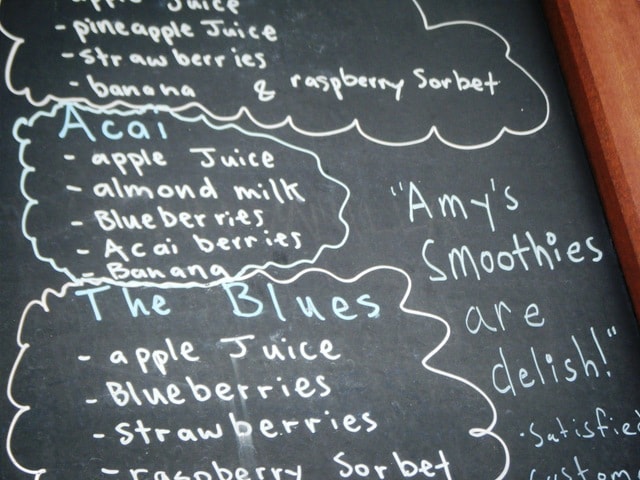 apple Juice
- pineapple Juice
- strawberries
- banana & raspberry Sorbet
Acai
- apple Juice
- almond milk
- Blueberries
- Acai berries
- Banana
The Blues
- apple Juice
- Blueberries
- strawberries
- raspberry Sorbet
"Amy's
Smoothies
are
delish!"
· Satisfied
Custom